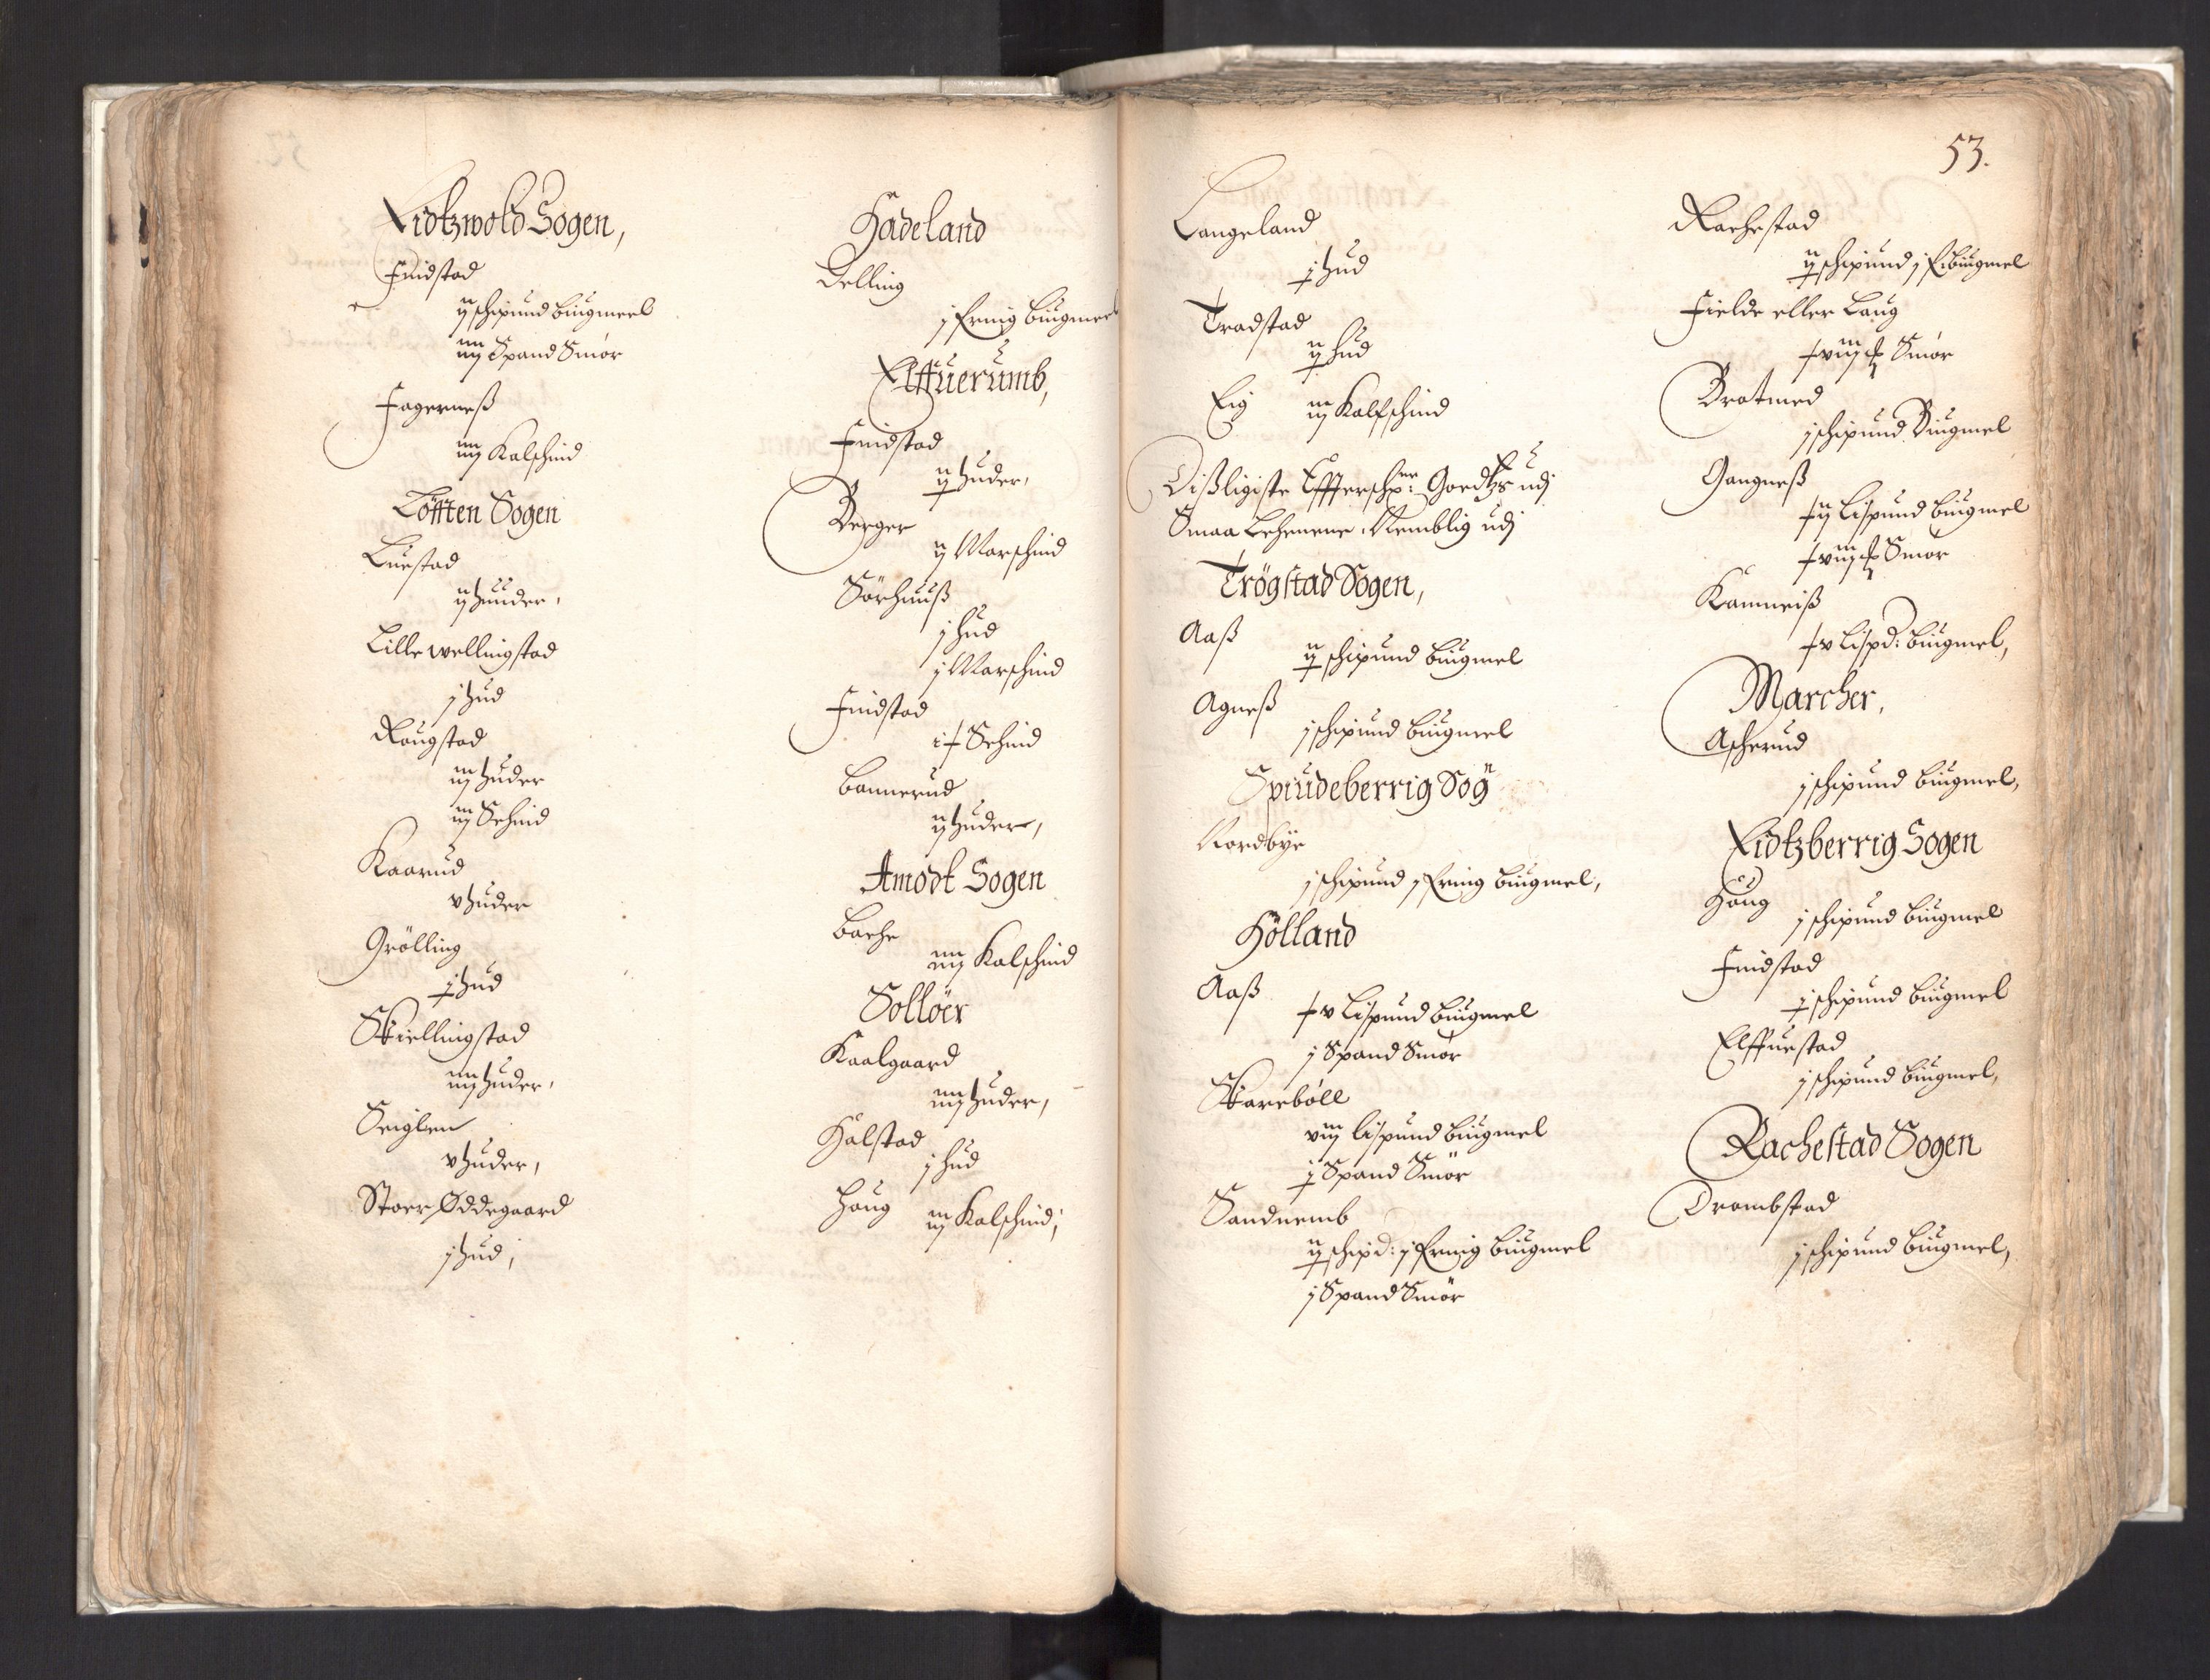 Eidtzwold Sogen,
Finstad
ij schipund biugmeel
iiij Spand Smör
Fagerneß
iiij Kalschind
Löfften Sogen
Luestad
ij huuder,
Lille wellingstad
j hud
Rougstad
iij huder
iij Schind
Kaarud
v huder
Grölling
j hud
Skiellingstad
iiij huder,
Seiglem
v huder,
Stoer Øddegaard
j hud,
Hadeland
Delling
j fering biugmeel
Elffuerumb,
Findstad
ij huder,
Berger
ij Marschind
Sörhuuß
j hud
j Marschind
Findstad
Schind
Bannerud
ij huder,
Amodt Sogen
Bache
iiij Kalschind
Sollöer
Kaalgaard
iiij huder,
Halstad
j hud
Houg iij Kalschind,
53.
Langeland
j hud
Tradstad
ij hud
Eig iij Kalfschind
Dißligiste Effterschr: Goedtzs udj
Smaa Lehenene Nemblig udj
Trögstad Sogen,
Aaß
ij schipund biugmel
Agneß
j schipund biugmel
Spiudeberrig Sog
Nordbye
j schipund j fering biugmel,
Hölland
Aaß
v Lispund biugmel
j Spand Smör
Skareböll
viij lispund biugmel
j Spand Smör
Sandnemb
ij schipd: j fering biugmel
j Spand Smör
Rachestad
ij schipund j f: biugmel
Fielde eller Laug
Smör
Bratmed
j schipund Biugmel
Gangneß
Lispund biugmel
Smör
Kamneiß
v Lispd: biugmel,
Marcher,
Ascherud
j schipund biugmel,
Eidtzberrig Sogen
Houg
j schipund biugmel
Findstad
j schipund biugmel
Elffuestad
j schipund biugmel,
Rachestad Sogen
Drombstad
j schipund biugmel,